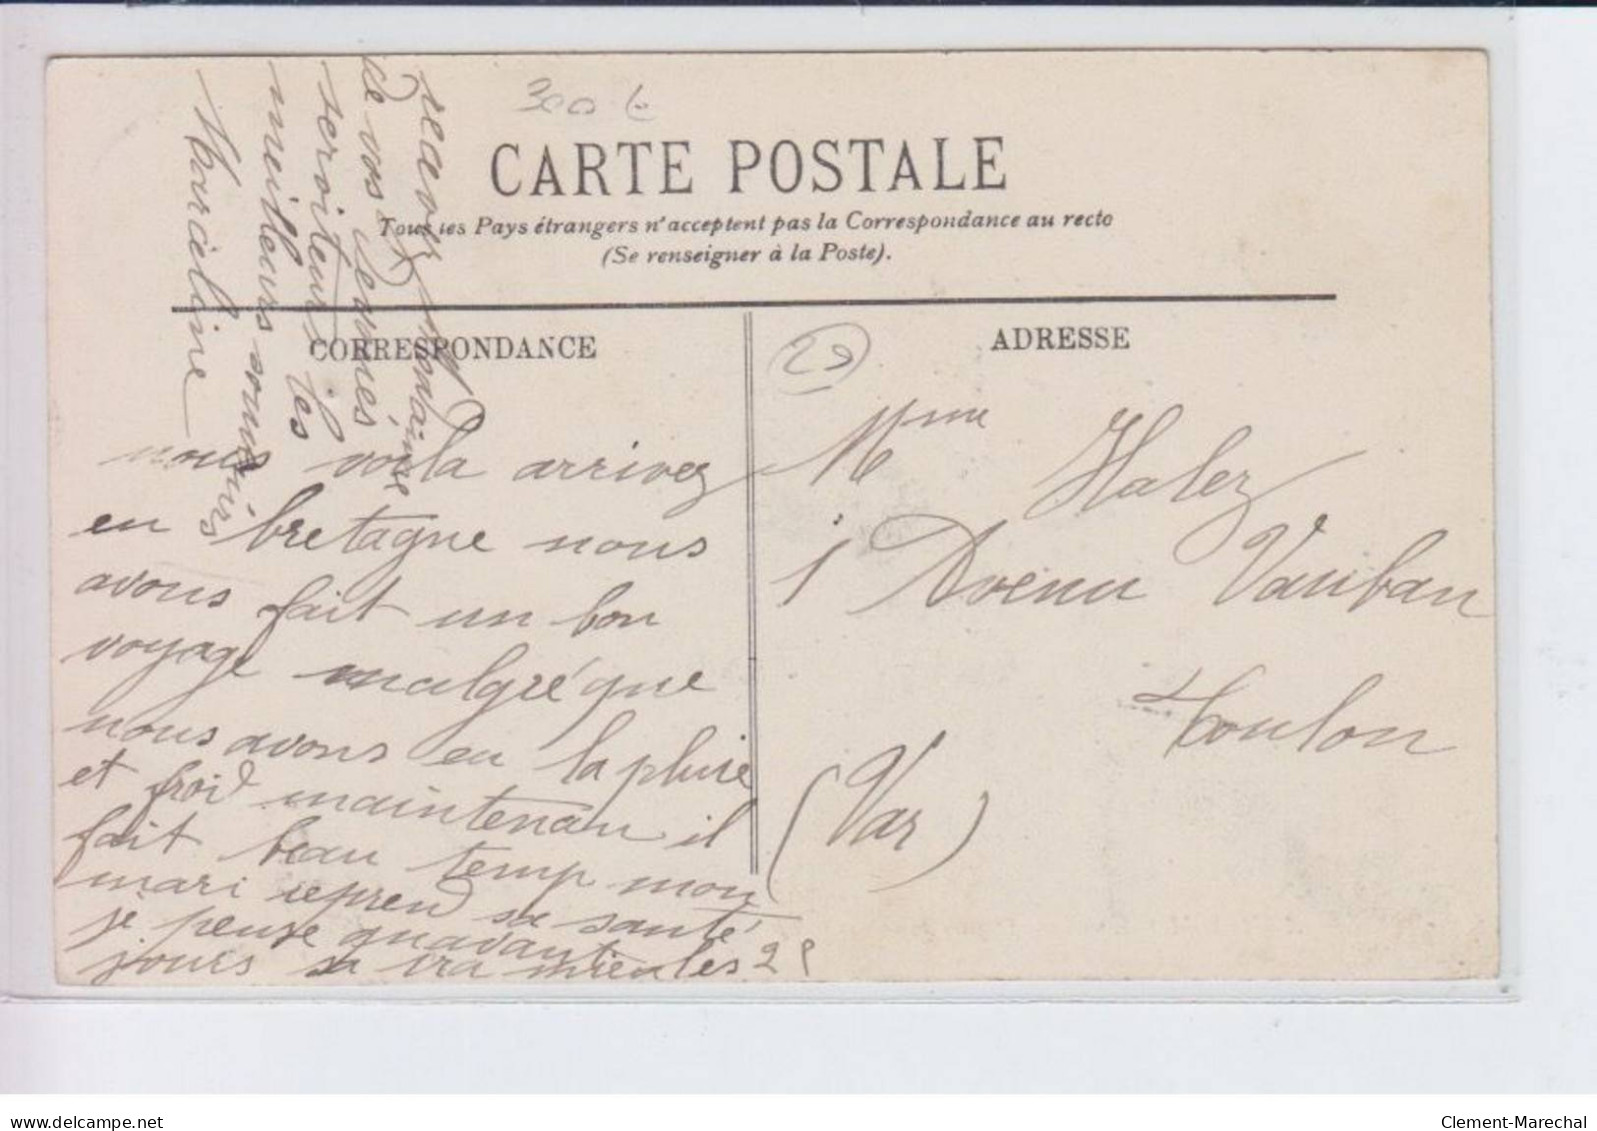 CARTE POSTALE
Tous les Pays étrangers n'acceptent pas la Correspondance au recto
(Se renseigner à la Poste).
CORRESPONDANCE
ADRESSE
29
nous voila arrivez
en bretagne nous
avons fait un bon
voyage malgré que
nous avons eu la pluie
et froid maintenan il
fait beau temp mon
mari repren sa santé
je pense quavant
jours sa ira mieu les
recevez Madame
de vos
serviteurs les
meilleurs souvenirs
Marceline
Mme Halez
1 Avenu Vauban
Toulon
(Var)
delcampe.net
Clement-Marechal